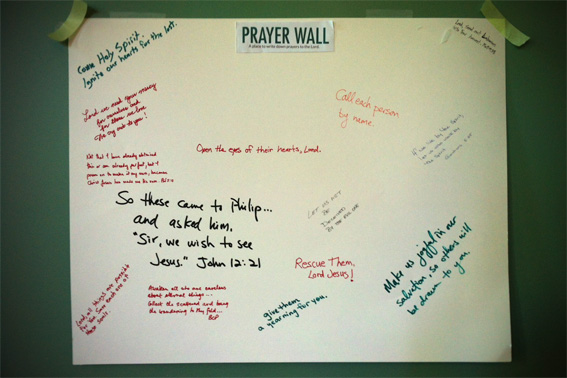 PRAYER WALL
A place to write down prayers to the Lord.
Come Holy Spirit.
Ignite our hearts for the lost.
Lord we need your mercy
for ourselves and
for those we love
We cry out to you!
Call each person
by name.
Open the eyes of their hearts, Lord.
Not that I have already obtained
this or am already perfect, but I
press on to make it my own, because
Christ Jesus has made me his own.
So these came to Philip...
and asked him,
"Sir, we wish to see
Jesus." John 12:21
Let us not
be
Deceived
by the evil one
Rescue Them,
Lord Jesus!
Make us joyful in our
salvation, so others will
be drawn to you.
Awaken all who are careless
about eternal things...
Collect the scattered and bring
the wandering to Thy fold...
BCP
give them
a yearning for you.
Lord, all things are possible